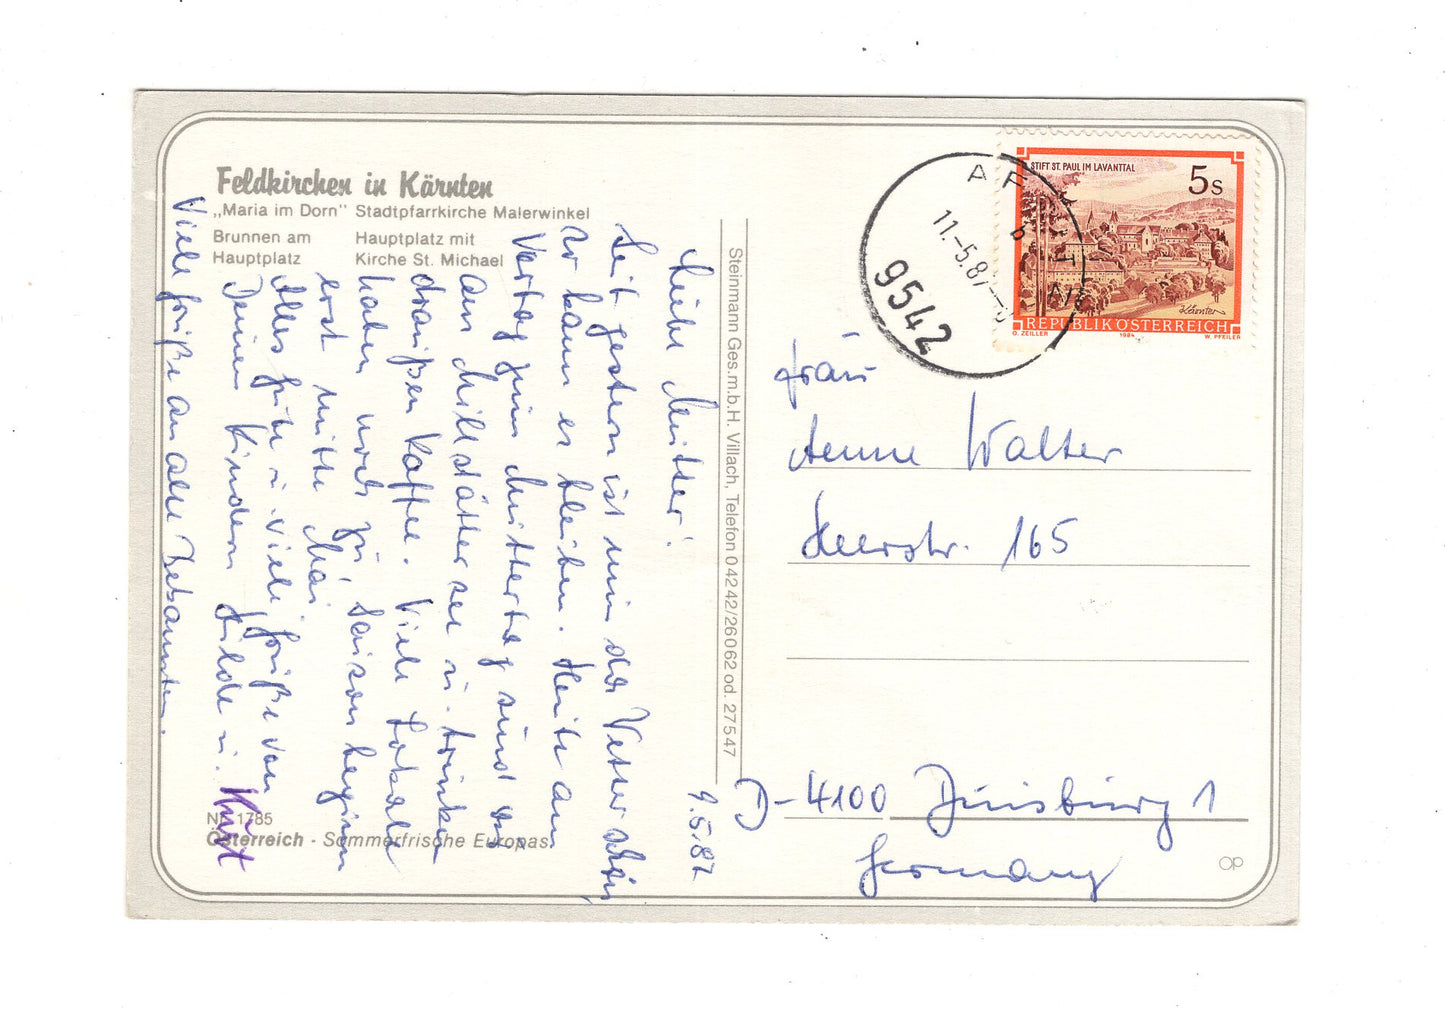 Feldkirchen in Kärnten
„Maria im Dorn" Stadtpfarrkirche Malerwinkel
Brunnen am Hauptplatz mit
Hauptplatz Kirche St. Michael
9.5.87
Liebe Mutter!
Seit gestern ist nun das Wetter schön,
so kann es bleiben. Heute am
Vortag zum Muttertag sind wir
am Millstätter See u. trinken
draußen Kaffee. Viele Lokale
haben noch zu, Saison beginn
erst mitte Mai
Alles gute u. viele Grüße von
Deinen Kindern Hilde u. Kurt
Viele Grüße an alle Bekannten.
Nr. 1785
Österreich - Sommerfrische Europas
Steinmann Ges.m.b.H. Villach, Telefon 04242/26062 od. 27547
AF
11.-5.87
9542
STIFT ST. PAUL IM LAVANTTAL
5s
Kärnten
REPUBLIK ÖSTERREICH
O. ZEILLER 1984 W. PFEILER
Frau
Aenne Walter
Heerstr. 165
D-4100 Duisburg 1
Germany
OP